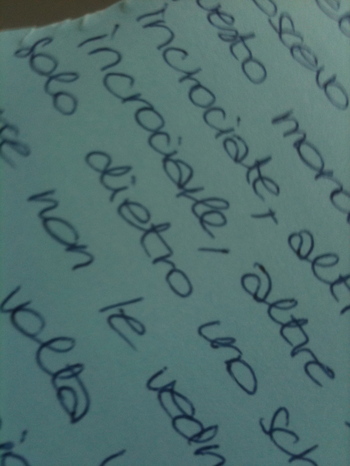 oscevo
uesto mond
incrociate, alt
incrociarle, altre
solo dietro uno sch
se non le vedr
volta